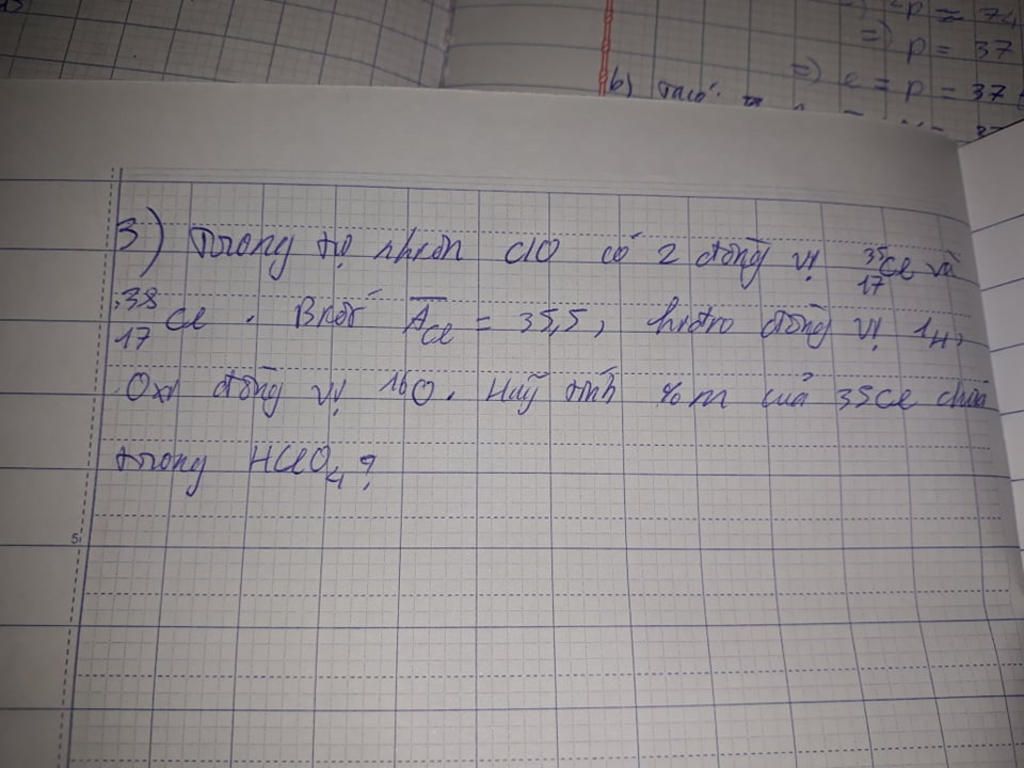 2p = 74
=) p = 37
b) Ta có:
=) e = p = 37
3) Trong tự nhiên clo có 2 đồng vị ³⁵₁₇Cl và
³⁸₁₇Cl. Biết A̅Cl = 35,5, hiđro đồng vị 1H,
Oxi đồng vị ¹⁶O. Hãy tính %m của 35Cl chứa
trong HClO₄?
5